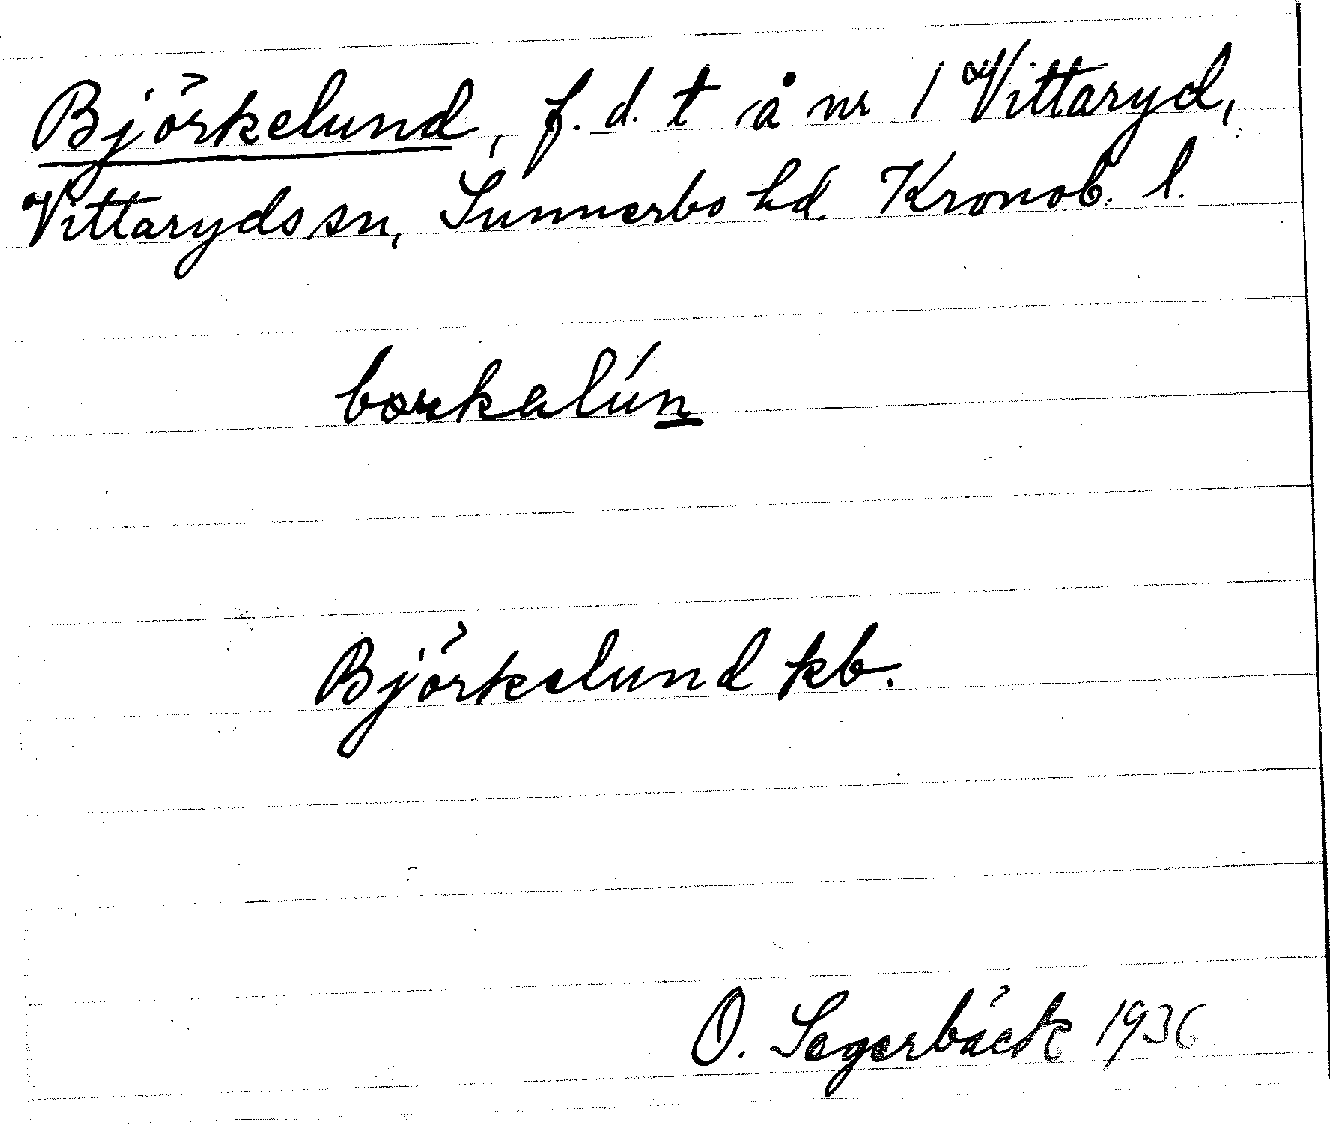 Björkelund, f. d. t å nr 1 Vittaryd,
Vittaryds sn, Sunnerbo hd. Kronob. l.
bœrkalún
Björkelund kb.
O. Segerbäck 1936